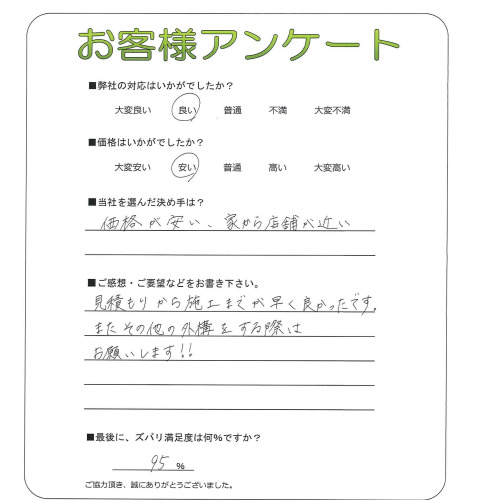 お客様アンケート
■弊社の対応はいかがでしたか？
大変良い 良い 普通 不満 大変不満
■価格はいかがでしたか？
大変安い 安い 普通 高い 大変高い
■当社を選んだ決め手は？
価格が安い、家から店舗が近い
■ご感想・ご要望などをお書き下さい。
見積もりから施工までが早く良かったです。
またその他の外構をする際は
お願いします!!
■最後に、ズバリ満足度は何%ですか？
95 %
ご協力頂き、誠にありがとうございました。